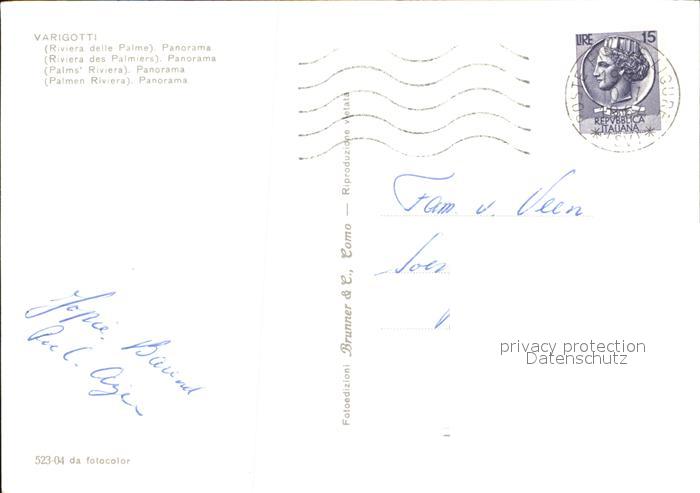 VARIGOTTI
(Riviera delle Palme). Panorama
(Riviera des Palmiers). Panorama
(Palms' Riviera). Panorama
(Palmen Riviera). Panorama
LIRE 15
POSTE
REPVBBLICA
ITALIANA
LIGURE
(SV)
Fotoedizioni Brunner & C., Como — Riproduzione vietata
Fam. v. Veen
privacy protection
Datenschutz
523-04 da fotocolor